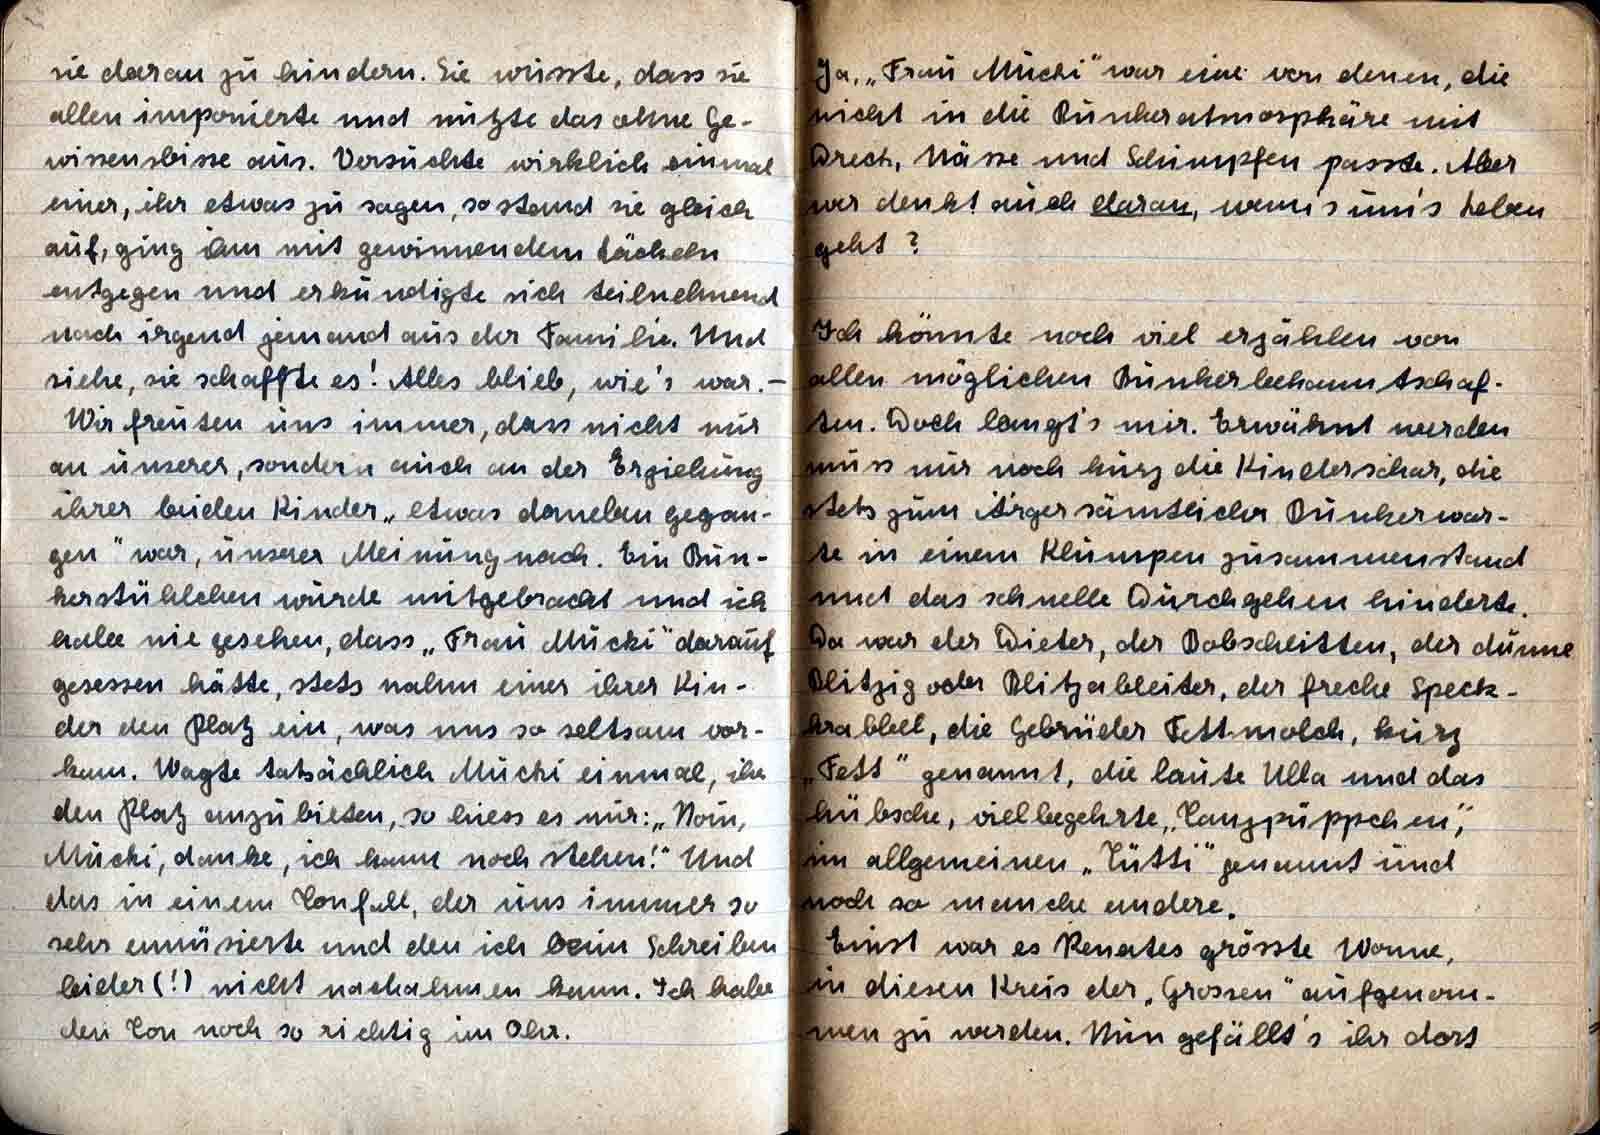 sie daran zu hindern. Sie wusste, dass sie
allen imponierte und nützte das ohne Ge-
wissensbisse aus. Versuchte wirklich einmal
einer, ihr etwas zu sagen, so stand sie gleich
auf, ging ihm mit gewinnendem Lächeln
entgegen und erkundigte sich teilnehmend
nach irgend jemand aus der Familie. Und
siehe, sie schaffte es! Alles blieb, wie's war. –
Wir freuten uns immer, dass nicht nur
an unserer, sondern auch an der Erziehung
ihrer beiden Kinder „etwas daneben gegan-
gen" war, unserer Meinung nach. Ein Bun-
kerstühlchen wurde mitgebracht und ich
habe nie gesehen, dass „Frau Mucki" darauf
gesessen hätte, stets nahm einer ihrer Kin-
der den Platz ein, was uns so seltsam vor-
kam. Wagte tatsächlich Mucki einmal, ihr
den Platz anzubieten, so hiess es nur: „Noin,
Mucki, danke, ich kann noch stehen!" Und
das in einem Tonfall, der uns immer so
sehr amüsierte und den ich beim Schreiben
leider (!) nicht nachahmen kann. Ich habe
den Ton noch so richtig im Ohr.
Ja, „Frau Mucki" war eine von denen, die
nicht in die Bunkeratmosphäre mit
Dreck, Nässe und Schimpfen passte. Aber
wer denkt auch daran, wenn's um's Leben
geht?
Ich könnte noch viel erzählen von
allen möglichen Bunkerbekanntschaf-
ten. Doch langt's mir. Erwähnt werden
muss nur noch kurz die Kinderschar, die
stets zum Ärger sämtlicher Bunkerwar-
te in einem Klumpen zusammenstand
und das schnelle Durchgehen hinderte.
Da war der Dieter, der Bobschlitten, der dünne
Blitzig oder Blitzableiter, der freche Speck-
krabbel, die Gebrüder Fettmolch, kurz
„Fett" genannt, die laute Ulla und das
hübsche, vielbegehrte „Tanzpüppchen",
im allgemeinen „Tütti" genannt und
noch so manche andere.
Einst war es Renates grösste Wonne,
in diesen Kreis der „Grossen" aufgenom-
men zu werden. Nun gefällt's ihr dort